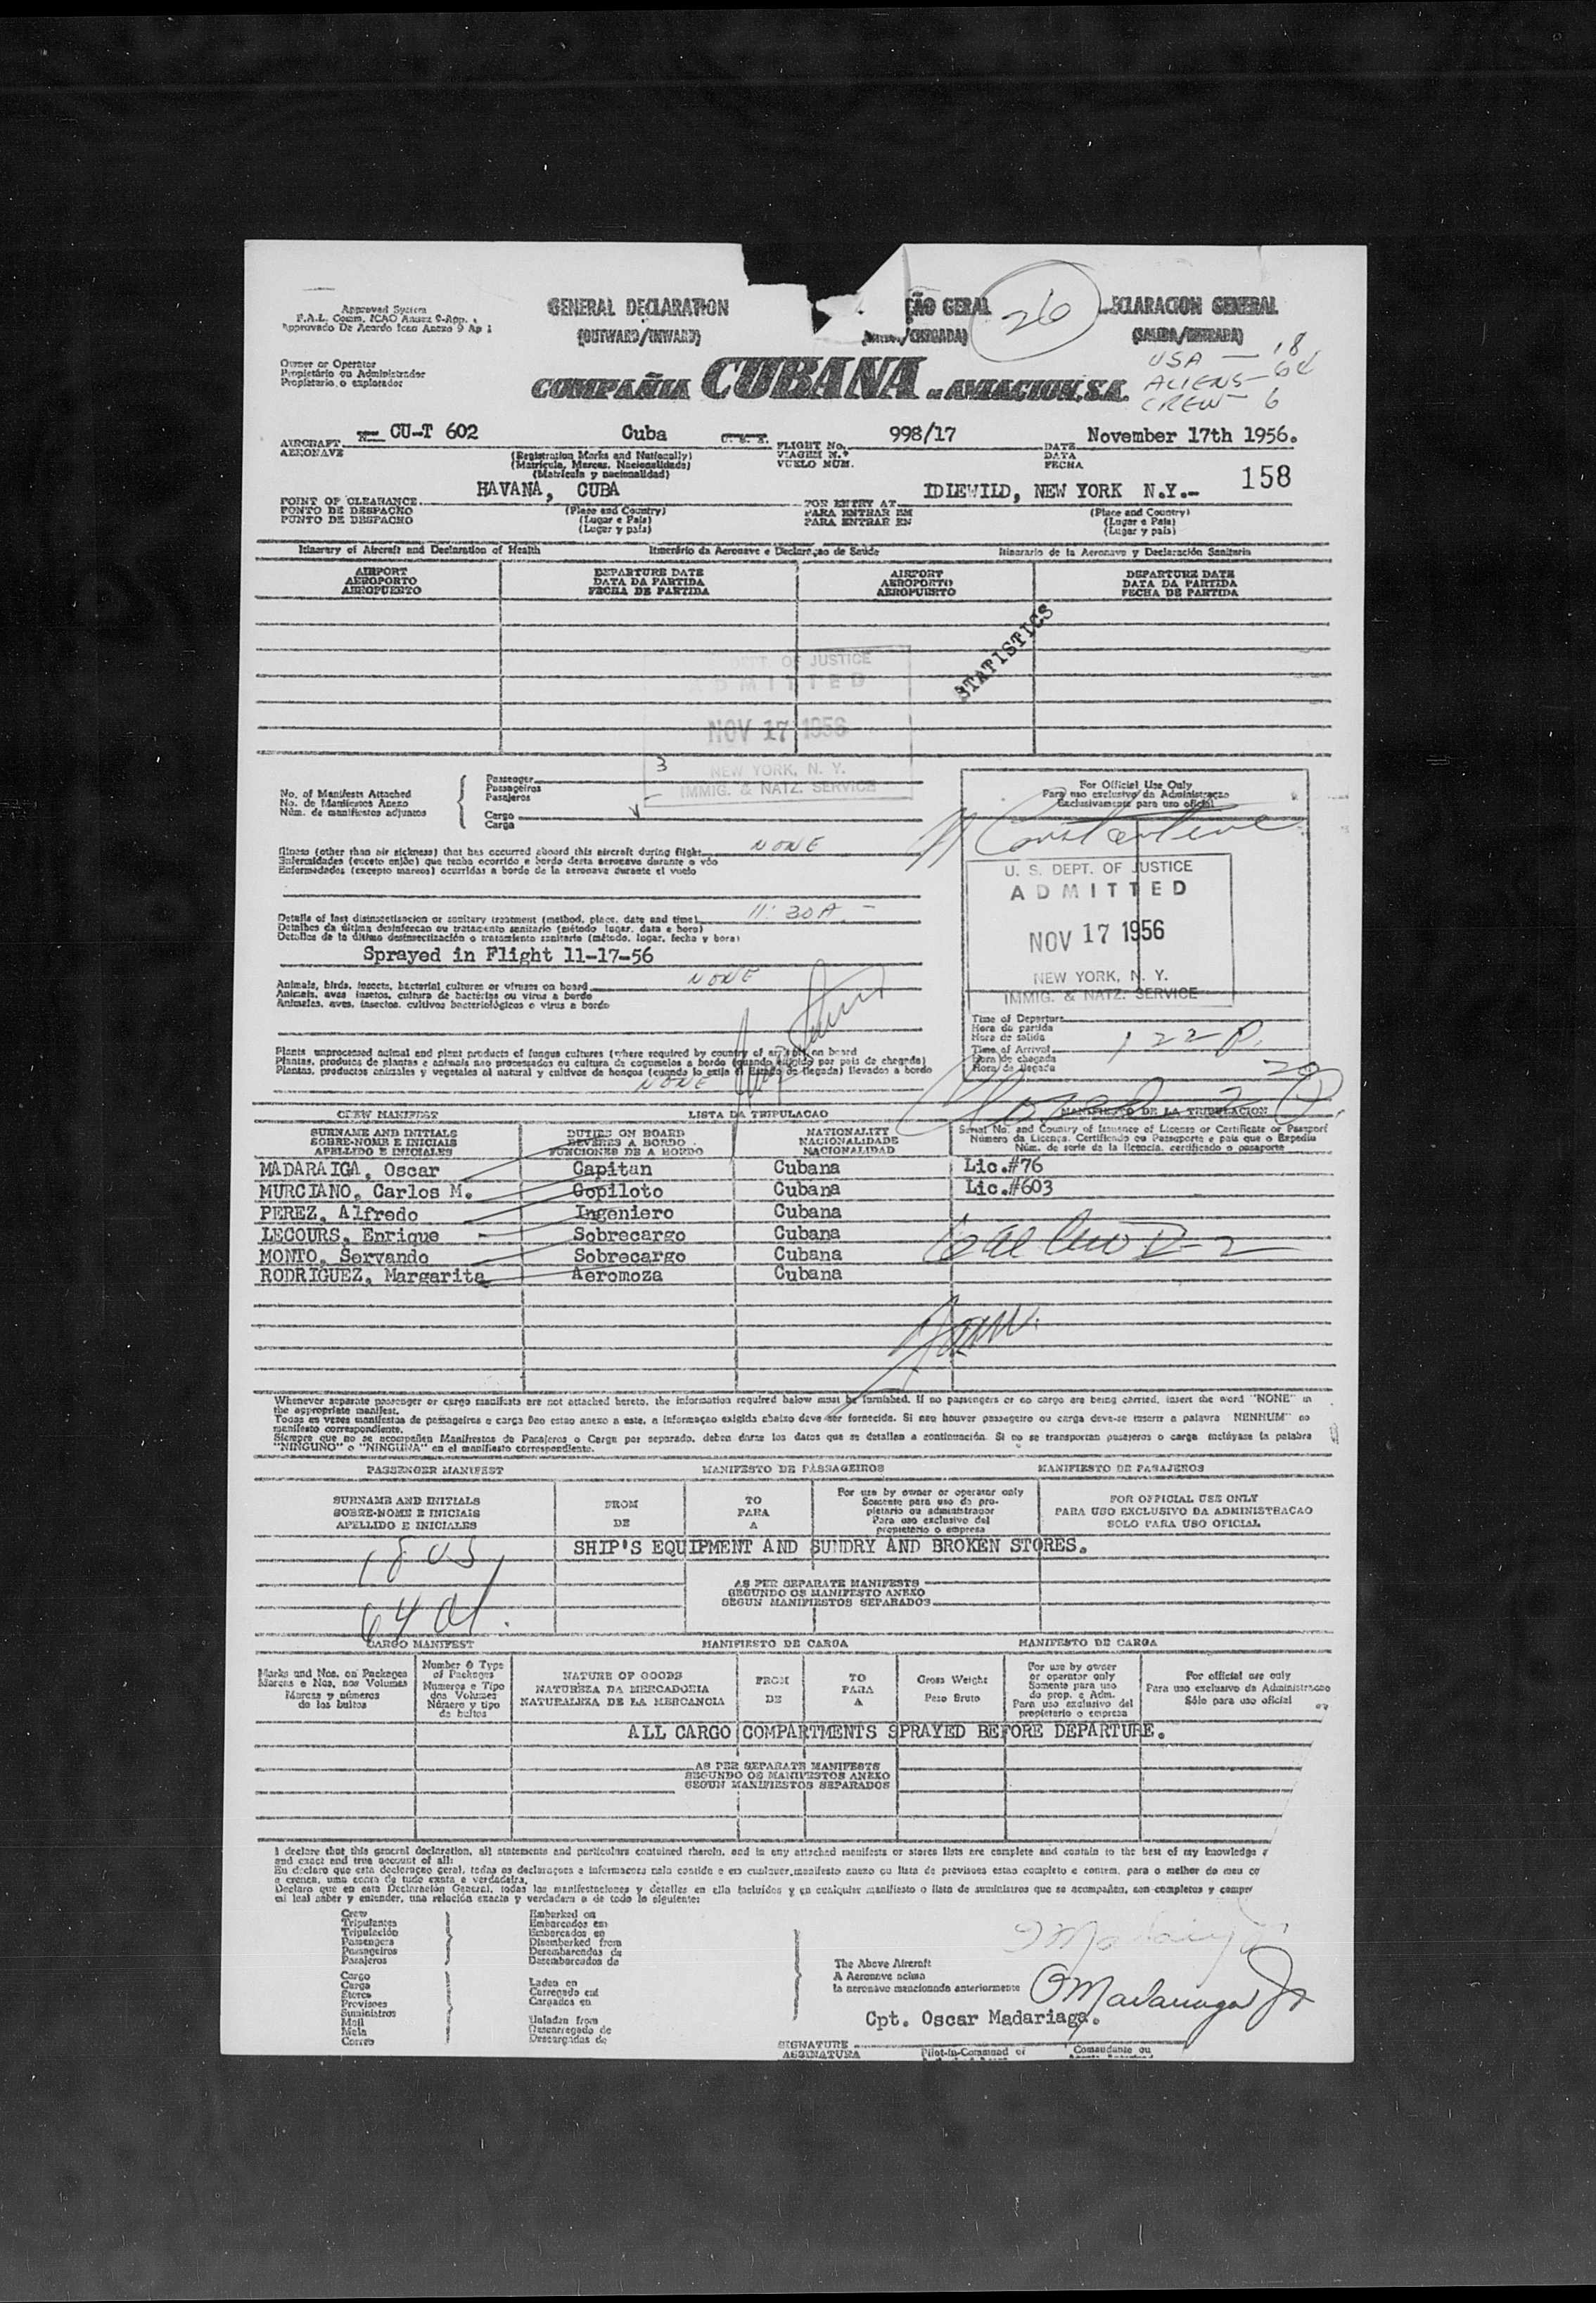 Approved System
F.A.L. Comm. ICAO Annex 9-App. 1
Approvado De Acordo Icao Anexo 9 Ap 1
GENERAL DECLARATION
(OUTWARD/INWARD)
ÇÃO GERAL
/CHEGADA)
26
DECLARACION GENERAL
(SALIDA/ENTRADA)
Owner or Operator
Propietário ou Administrador
Propietario, o explotador
COMPAÑIA CUBANA DE AVIACION, S.A.
USA — 18
ALIENS — 64
CREW — 6
AIRCRAFT
AERONAVE
N— CU-T 602
Cuba
U. S. A.
(Registration Marks and Nationally)
(Matricula, Marcas, Nacionalidade)
(Matricula y nacionalidad)
FLIGHT No.
VIAGEM N.º
VUELO NUM.
998/17
DATE
DATA
FECHA
November 17th 1956.
158
POINT OF CLEARANCE
PONTO DE DESPACHO
PUNTO DE DESPACHO
HAVANA, CUBA
(Place and Country)
(Lugar e País)
(Lugar y país)
FOR ENTRY AT
PARA ENTRAR EM
PARA ENTRAR EN
IDLEWILD, NEW YORK N.Y.-
(Place and Country)
(Lugar e País)
(Lugar y país)
Itinerary of Aircraft and Declaration of Health
Itinerário da Aeronave e Declaração de Saúde
Itinerario de la Aeronave y Declaración Sanitaria
AIRPORT
AEROPORTO
AEROPUERTO
DEPARTURE DATE
DATA DA PARTIDA
FECHA DE PARTIDA
AIRPORT
AEROPORTO
AEROPUERTO
DEPARTURE DATE
DATA DA PARTIDA
FECHA DE PARTIDA
STATISTICS
DEPT. OF JUSTICE
ADMITTED
NOV 17 1956
NEW YORK, N. Y.
IMMIG. & NATZ. SERVICE
No. of Manifests Attached
No. de Manifiestos Anexo
Núm. de manifiestos adjuntos
Passenger
Passageiros
Pasajeros
3
Cargo
Carga
For Official Use Only
Para uso exclusivo da Administração
Exclusivamente para uso oficial
Constantine
U. S. DEPT. OF JUSTICE
ADMITTED
NOV 17 1956
NEW YORK, N. Y.
IMMIG. & NATZ. SERVICE
Illness (other than air sickness) that has occurred aboard this aircraft during flight
NONE
Enfermidades (exceto enjôo) que tenha ocorrido a bordo desta aeronave durante o vôo
Enfermedades (excepto mareos) ocurridas a bordo de la aeronave durante el vuelo
Details of last disinsectisacion or sanitary treatment (method, place, date and time)
11:30A.—
Detalhes da última desinfeccao ou tratamento sanitario (método lugar, data e hora)
Detalles de la última desinsectización o tratamiento sanitario (método, lugar, fecha y hora)
Sprayed in Flight 11-17-56
Animals, birds, insects, bacterial cultures or viruses on board
NONE
Animais, aves insetos, cultura de bactérias ou virus a bordo
Animales, aves, insectos, cultivos bacteriológicos o virus a bordo
Time of Departure
Hora da partida
Hora de salida
Time of Arrival
Hora de chegada
Hora de llegada
122P.
Plants unprocessed animal and plant products of fungus cultures (where required by country of arrival) on board
Plantas, produtos de plantas e animais nao processados ou cultura de cogumelos a bordo (quando exigido por país de chegada)
Plantas, productos animales y vegetales al natural y cultivos de hongos (cuando lo exija el Estado de llegada) llevados a bordo
NONE
CREW MANIFEST
LISTA DA TRIPULACAO
MANIFIESTO DE LA TRIPULACION
SURNAME AND INITIALS
SOBRE-NOME E INICIAIS
APELLIDO E INICIALES
DUTIES ON BOARD
DEVERES A BORDO
FUNCIONES DE A BORDO
NATIONALITY
NACIONALIDADE
NACIONALIDAD
Serial No. and Country of Issuance of License or Certificate or Passport
Número da Licença, Certificado ou Passaporte e país que o Expediu
Núm. de serie de la licencia, certificado o pasaporte
MADARAIGA, Oscar Capitan Cubana Lic.#76
MURCIANO, Carlos M. Copiloto Cubana Lic.#603
PEREZ, Alfredo Ingeniero Cubana
LECOURS, Enrique Sobrecargo Cubana
MONTO, Servando Sobrecargo Cubana
RODRIGUEZ, Margarita Aeromoza Cubana
Whenever separate passenger or cargo manifests are not attached hereto, the information required below must be furnished. If no passengers or no cargo are being carried, insert the word "NONE" in
the appropriate manifest.
Todas as vezes manifestos de passageiros e carga nao estao anexo a este, a informaçao exigida abaixo deve ser fornecida. Si nao houver passageiro ou carga deve-se inserir a palavra "NENHUM" no
manifesto correspondente.
Siempre que no se acompañen Manifiestos de Pasajeros o Carga por separado, deben darse los datos que se detallan a continuación. Si no se transportan pasajeros o carga inclúyase la palabra
"NINGUNO" o "NINGUNA" en el manifiesto correspondiente.
PASSENGER MANIFEST
MANIFESTO DE PASSAGEIROS
MANIFIESTO DE PASAJEROS
SURNAME AND INITIALS
SOBRE-NOME E INICIAIS
APELLIDO E INICIALES
FROM
DE
TO
PARA
A
For use by owner or operator only
Somente para uso do pro-
pietario ou administrador
Para uso exclusivo del
propietario o empresa
FOR OFFICIAL USE ONLY
PARA USO EXCLUSIVO DA ADMINISTRACAO
SOLO PARA USO OFICIAL
18 US
SHIP'S EQUIPMENT AND SUNDRY AND BROKEN STORES.
AS PER SEPARATE MANIFESTS
SEGUNDO OS MANIFESTO ANEXO
SEGUN MANIFIESTOS SEPARADOS
64 al.
CARGO MANIFEST
MANIFIESTO DE CARGA
MANIFESTO DE CARGA
Marks and Nos. on Packages
Marcas e Nos. nos Volumes
Marcas y números
de los bultos
Number & Type
of Packages
Numeros e Tipo
dos Volumes
Número y tipo
de bultos
NATURE OF GOODS
NATUREZA DA MERCADORIA
NATURALEZA DE LA MERCANCIA
FROM
DE
TO
PARA
A
Gross Weight
Peso Bruto
For use by owner
or operator only
Somente para uso
do prop. e Adm.
Para uso exclusivo del
propietario o empresa
For official use only
Para uso exclusivo da Administracao
Sólo para uso oficial
ALL CARGO COMPARTMENTS SPRAYED BEFORE DEPARTURE.
AS PER SEPARATE MANIFESTS
SEGUNDO OS MANIFESTOS ANEXO
SEGUN MANIFIESTOS SEPARADOS
I declare that this general declaration, all statements and particulars contained therein, and in any attached manifests or stores lists are complete and contain to the best of my knowledge
and exact and true account of all:
Eu declaro que esta declaraçao geral, todas as declaraçoes e informacoes nela contida e em cualquer manifesto anexo ou lista de previsoes estao completo e contem, para o melhor do meu co
e crenca, uma conta de tudo exata e verdadeira.
Declaro que en esta Declaración General, todas las manifestaciones y detalles en ella incluídos y en cualquier manifiesto o lista de suministros que se acompañen, son completos y compr
mi leal saber y entender, una relación exacta y verdadera o de todo lo siguiente:
Crew
Tripulantes
Tripulación
Passengers
Passageiros
Pasajeros
Embarked on
Embarcados em
Embarcados en
Disembarked from
Desembarcados da
Desembarcados de
Cargo
Carga
Stores
Provisoes
Suministros
Mail
Mala
Correo
Laden on
Carregado em
Cargados en
Unladen from
Descarregado de
Descargadas de
The Above Aircraft
A Aeronave acima
la aeronave mencionada anteriormente
OMadariaga Jr
Cpt. Oscar Madariaga.
SIGNATURE
ASSINATURA
Pilot-in-Command of
Comandante ou